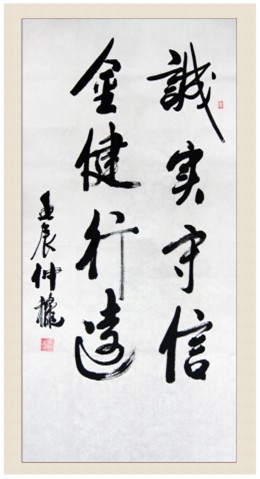 誠实守信
金健行遠
壬辰仲